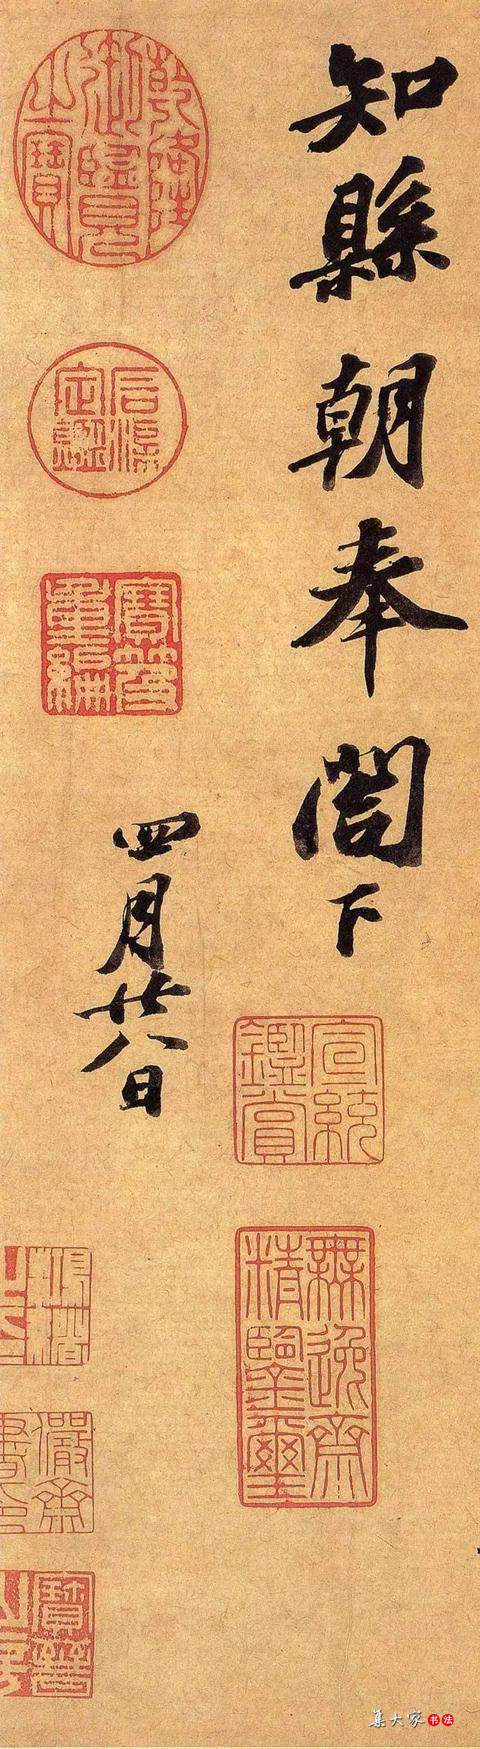 知縣朝奉閤下
四月廿八日
乾隆御覽之寶
石渠定鑑
寶笈重編
宣統鑑賞
無逸齋精鑒璽
儼齋
集大家书法